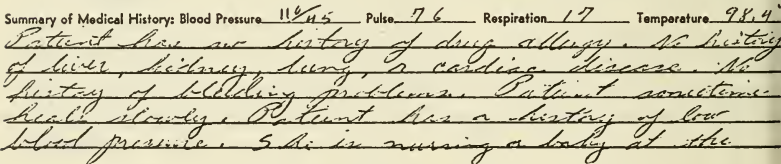 Summary of Medical History: Blood Pressure 116/45 Pulse 76 Respiration 17 Temperature 98.4
Patient has no history of drug allergy. No history
of liver, kidney, lung, or cardiac disease. No
history of bleeding problems. Patient sometime
heals slowly. Patient has a history of low
blood pressure. She is nursing a baby at the